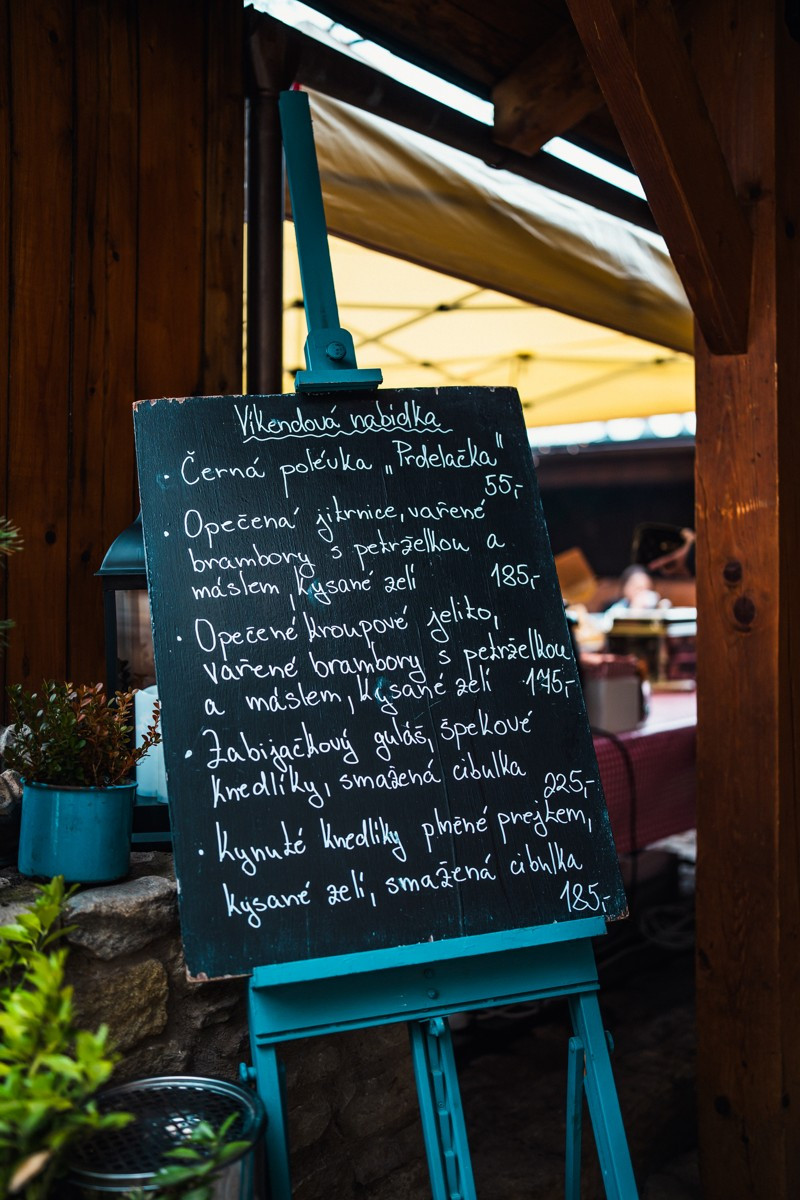 Víkendová nabídka
• Černá polévka „Prdelačka"
55,-
• Opečená jitrnice, vařené
brambory s petrželkou a
máslem, kysané zelí 185,-
• Opečené kroupové jelito,
vařené brambory s petrželkou
a máslem, kysané zelí 175,-
• Zabijačkový guláš, špekové
knedlíky, smažená cibulka
225,-
• Kynuté knedlíky plněné prejtem,
kysané zelí, smažená cibulka
185,-